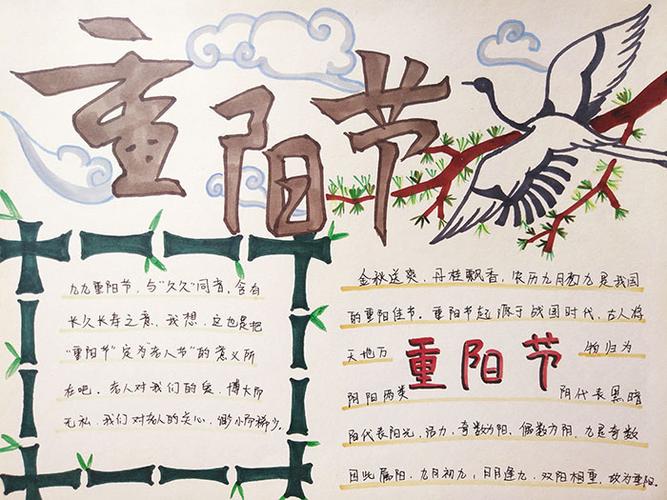 重阳节
九九重阳节，与"久久"同音，含有
长久长寿之意，我想，这也是把
"重阳节"定为"老人节"的意义所
在吧。老人对我们的爱，博大而
无私，我们对老人的关心，却小而稀少。
金秋送爽，丹桂飘香，农历九月初九是我国
的重阳佳节。重阳节起源于战国时代，古人将
天地万 物归为
重阳节
阴阳两类 阴代表黑暗
阳代表阳光，活力，奇数为阳，偶数为阴，九是奇数
因此属阳，九月初九，日月逢九，双阳相重，故为重阳。